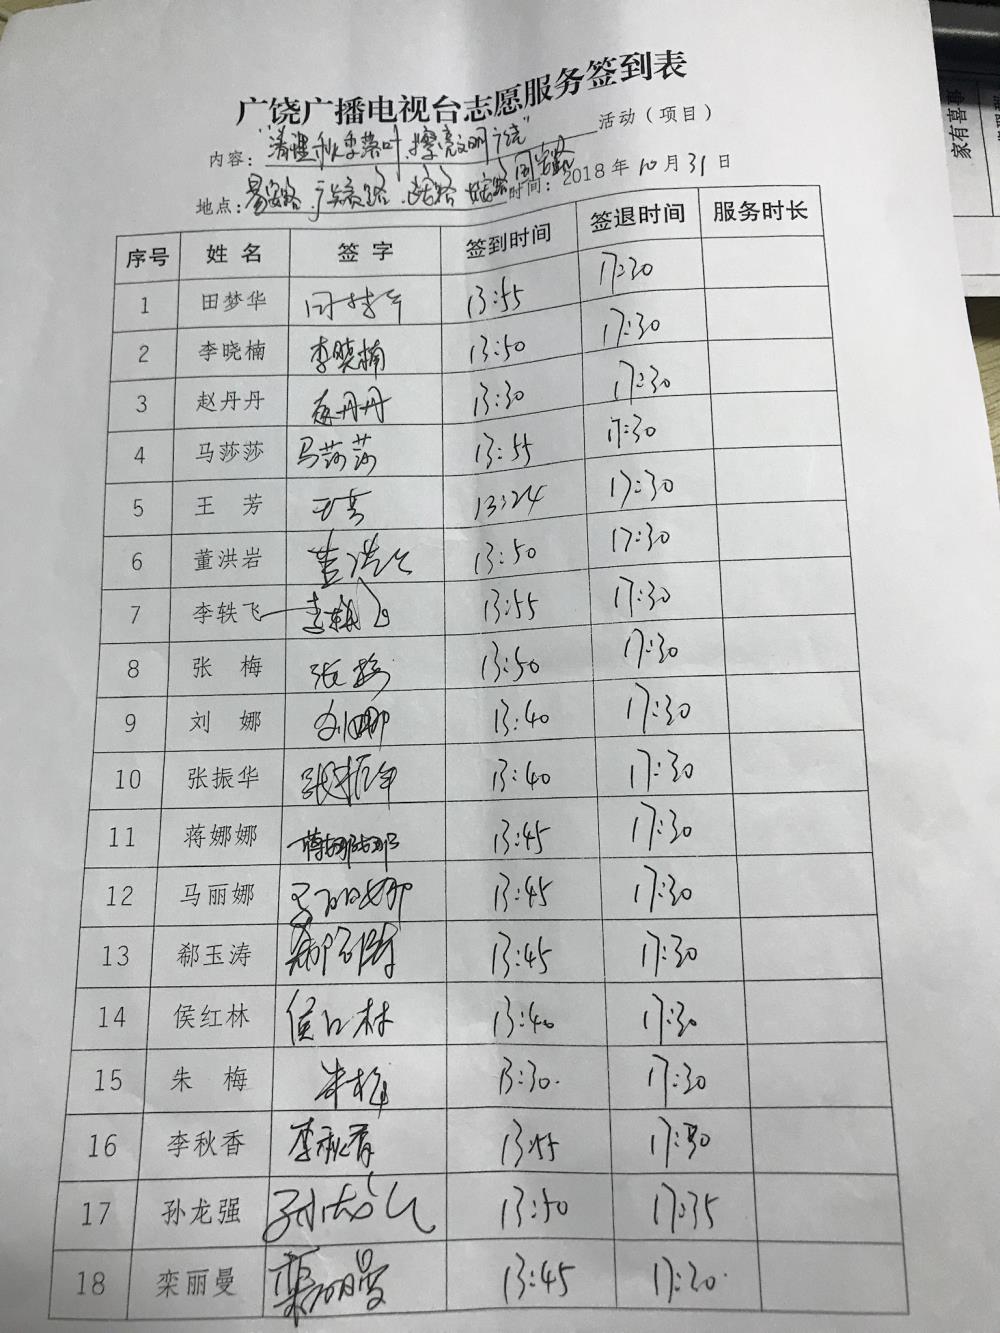 广饶广播电视台志愿服务签到表
内容："清理秋季落叶.擦亮文明广饶"活动（项目）
地点：易安路.广饶路.时间：2018年10月31日
序号 姓名 签字 签到时间 签退时间 服务时长
1 田梦华 田梦华 13:55 17:30
2 李晓楠 李晓楠 13:50 17:30
3 赵丹丹 赵丹丹 13:30 17:30
4 马莎莎 马莎莎 13:55 17:30
5 王 芳 王芳 13:24 17:30
6 董洪岩 董洪岩 13:50 17:30
7 李轶飞 李轶飞 13:55 17:30
8 张 梅 张梅 13:50 17:30
9 刘 娜 刘娜 13:40 17:30
10 张振华 张振华 13:40 17:30
11 蒋娜娜 蒋娜娜 13:45 17:30
12 马丽娜 马丽娜 13:45 17:30
13 郗玉涛 郗玉涛 13:45 17:30
14 侯红林 侯红林 13:40 17:30
15 朱 梅 朱梅 13:30 17:30
16 李秋香 李秋香 13:55 17:30
17 孙龙强 孙龙强 13:50 17:35
18 栾丽曼 栾丽曼 13:45 17:20
家有喜事